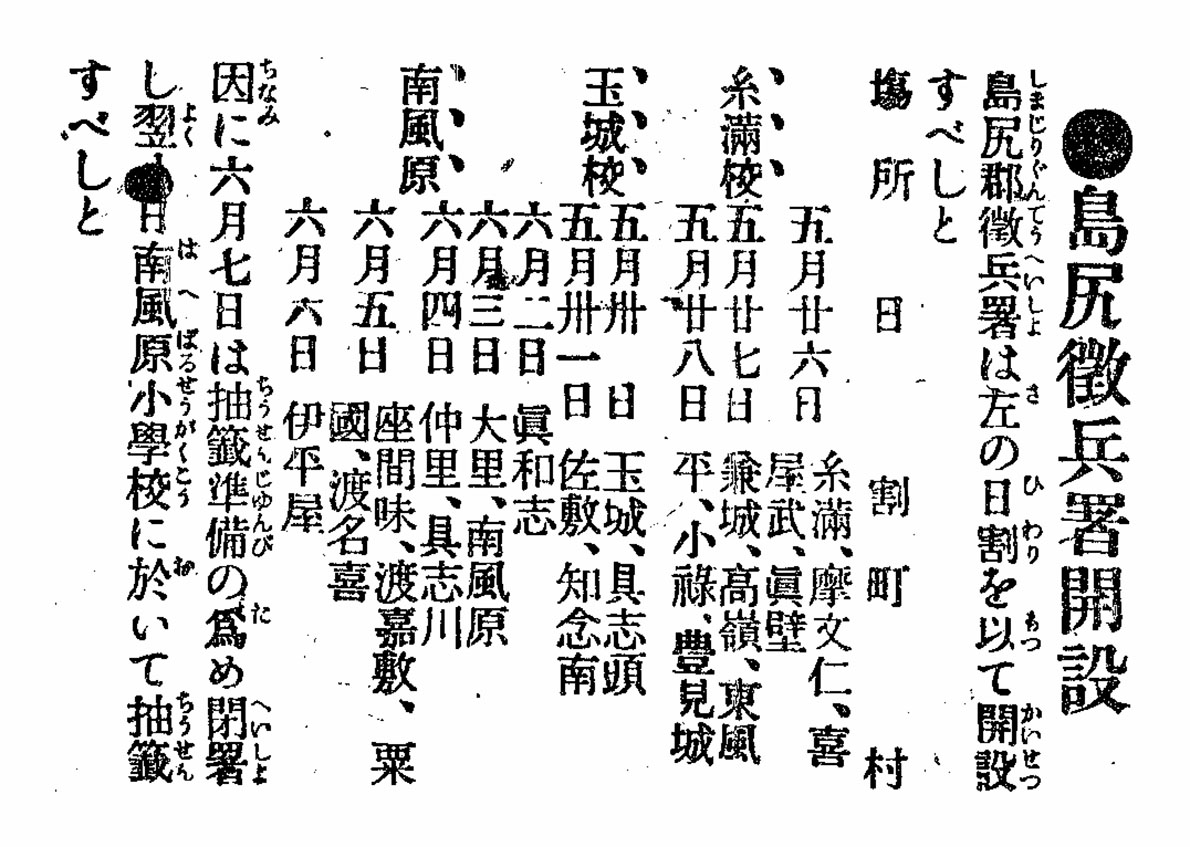 ●島尻徴兵署開設
島尻郡徴兵署は左の日割を以て開設
すべしと
塲所 日割 町村
糸滿校 五月廿六日 糸滿、摩文仁、喜
屋武、眞壁
、、、 五月廿七日 兼城、高嶺、東風
五月廿八日 平、小祿、豊見城
玉城校 五月卅日 玉城、具志頭
、、、 五月卅一日 佐敷、知念南
六月二日 眞和志
、、、 六月三日 大里、南風原
南風原 六月四日 仲里、具志川
六月五日 座間味、渡嘉敷、粟
國、渡名喜
六月六日 伊平屋
因に六月七日は抽籤準備の爲め閉署
し翌 日南風原小學校に於いて抽籤
すべしと